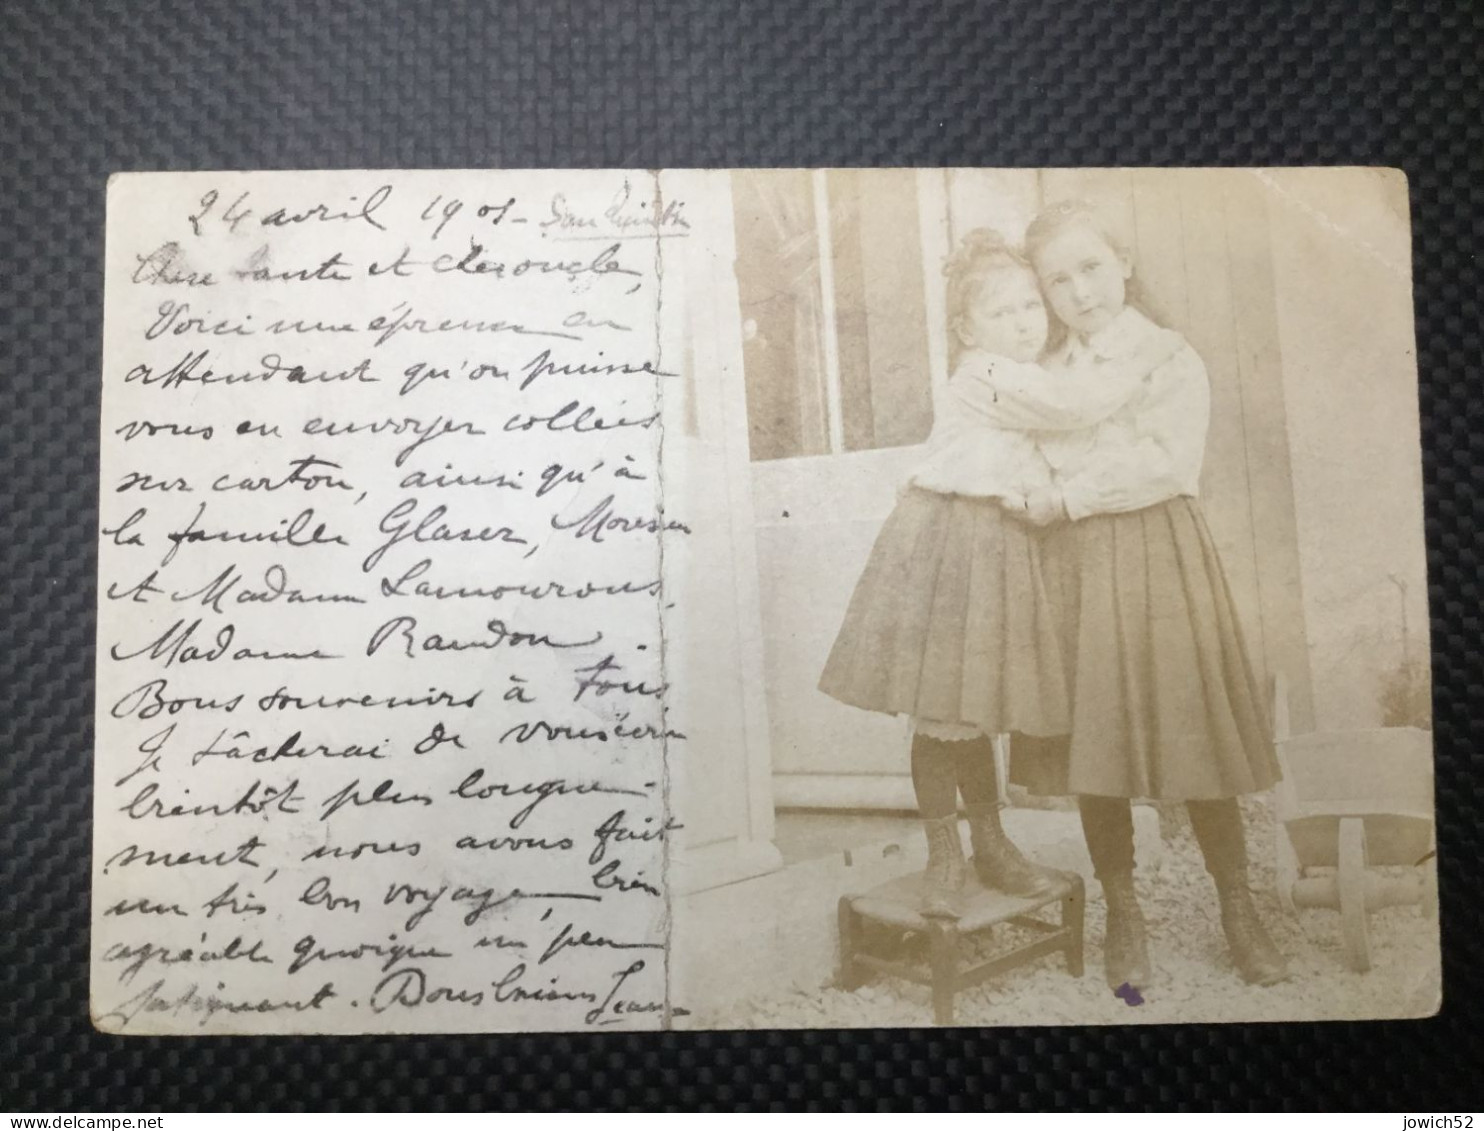 24 avril 1901 - San Quintin
Chère tante et cher oncle,
Voici une épreuve en
attendant qu'on puisse
vous en envoyer collées
sur carton, ainsi qu'à
la famille Glaser, Monsieur
et Madame Lamourous,
Madame Randon.
Bons souvenirs à tous
Je tâcherai de vous écrire
bientôt plus longue-
ment, nous avons fait
un très bon voyage, bien
agréable quoique un peu
fatiguant. Bons baisers Jean
jowich52